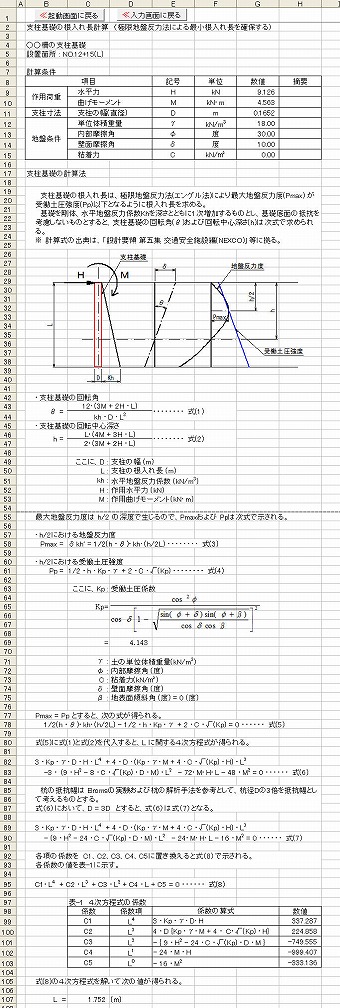 ≪起動画面に戻る ≪入力画面に戻る
支柱基礎の根入れ長計算 (極限地盤反力法による最小根入れ長を確保する)
〇〇柵の支柱基礎
設置箇所：NO.12+15(L)
計算条件
項目 記号 単位 数値 摘要
作用荷重 水平力 H kN 9.126
曲げモーメント M kN·m 4.563
支柱寸法 支柱の幅(直径) D m 0.1652
地盤条件 単位体積重量 γ kN/m³ 18.00
内部摩擦角 φ 度 30.00
壁面摩擦角 δ 度 10.00
粘着力 C kN/m² 0.00
支柱基礎の計算法
支柱基礎の根入れ長は、極限地盤反力法(エンゲル法)により最大地盤反力度(Pmax)が
受働土圧強度(Pp)以下となるように根入れ長を求める。
基礎を剛体、水平地盤反力係数Khを深さとともに1次増加するものとし、基礎底面の抵抗を
考慮しないものとすると、支柱基礎の回転角(θ)および回転中心深さ(h)は次式で求められ
る。
※ 計算式の出典は、「設計要領 第五集 交通安全施設編(NEXCO)」等に拠る。
支柱基礎 地盤反力度
H M δ θ h/2 h Pmax L
受働土圧強度
D Kh
・支柱基礎の回転角
θ = 12·(3M + 2H·L) / kh·D·L⁴ ········ 式(1)
・支柱基礎の回転中心深さ
h = L·(4M + 3H·L) / 2·(3M + 2H·L) ········ 式(2)
ここに、D：支柱の幅(m)
L：支柱の根入れ長(m)
kh：水平地盤反力係数(kN/m³)
H：作用水平力(kN)
M：作用曲げモーメント(kN·m)
最大地盤反力度は h/2 の深度で生じるので、Pmaxおよび Ppは次式で示される。
・h/2における地盤反力度
Pmax = δ·kh' = 1/2(h·θ)·kh·(h/2L) ········ 式(3)
・h/2における受働土圧強度
Pp = 1/2·h·Kp·γ + 2·C·√(Kp) ········ 式(4)
ここに、Kp：受働土圧係数
Kp= cos²φ / cos δ [1 − √(sin(φ + δ) sin(φ + β) / cos δ cos β)]²
= 4.143
γ：土の単位体積重量(kN/m³)
φ：内部摩擦角(度)
C：粘着力(kN/m²)
δ：壁面摩擦角(度)
β：地表面傾斜角(度)=0(度)
Pmax = Pp とすると、次の式が得られる。
1/2(h·θ)·kh·(h/2L) - 1/2·h·Kp·γ + 2·C·√(Kp) = 0 ······ 式(5)
式(5)に式(1)と式(2)を代入すると、Lに関する4次方程式が得られる。
3·Kp·γ·D·H·L⁴ + 4·D·(Kp·γ·M + 4·C·√(Kp)·H)·L³
-3·(9·H² - 8·C·√(Kp)·D·M)·L² - 72·M·H·L - 48·M² = 0 ······ 式(6)
杭の抵抗幅は Bromsの実験および杭の解析手法を参考として、杭径Dの3倍を抵抗幅とし
て考えるものとする。
式(6)において、D = 3D とすると、式(6)は式(7)となる。
3·Kp·γ·D·H·L⁴ + 4·D·(Kp·γ·M + 4·C·√(Kp)·H)·L³
-(9·H² - 24·C·√(Kp)·D·M)·L² - 24·M·H·L - 16·M² = 0 ······ 式(7)
各項の係数を C1、C2、C3、C4、C5に置き換えると式(8)で示される。
各係数の値を表-1に示す。
C1·L⁴ + C2·L³ + C3·L² + C4·L + C5 = 0 ······ 式(8)
表-1 4次方程式の係数
係数 係数項 係数の算式 数値
C1 L⁴ 3·Kp·γ·D·H 337.287
C2 L³ 4·D[Kp·γ·M + 4·C·√(Kp)·H] 224.858
C3 L² -[9·H² - 24·C·√(Kp)·D·M] -749.555
C4 L¹ -24·M·H -999.407
C5 L⁰ -16·M² -333.136
式(8)の4次方程式を解いて次の値が得られる。
L = 1.752 (m)